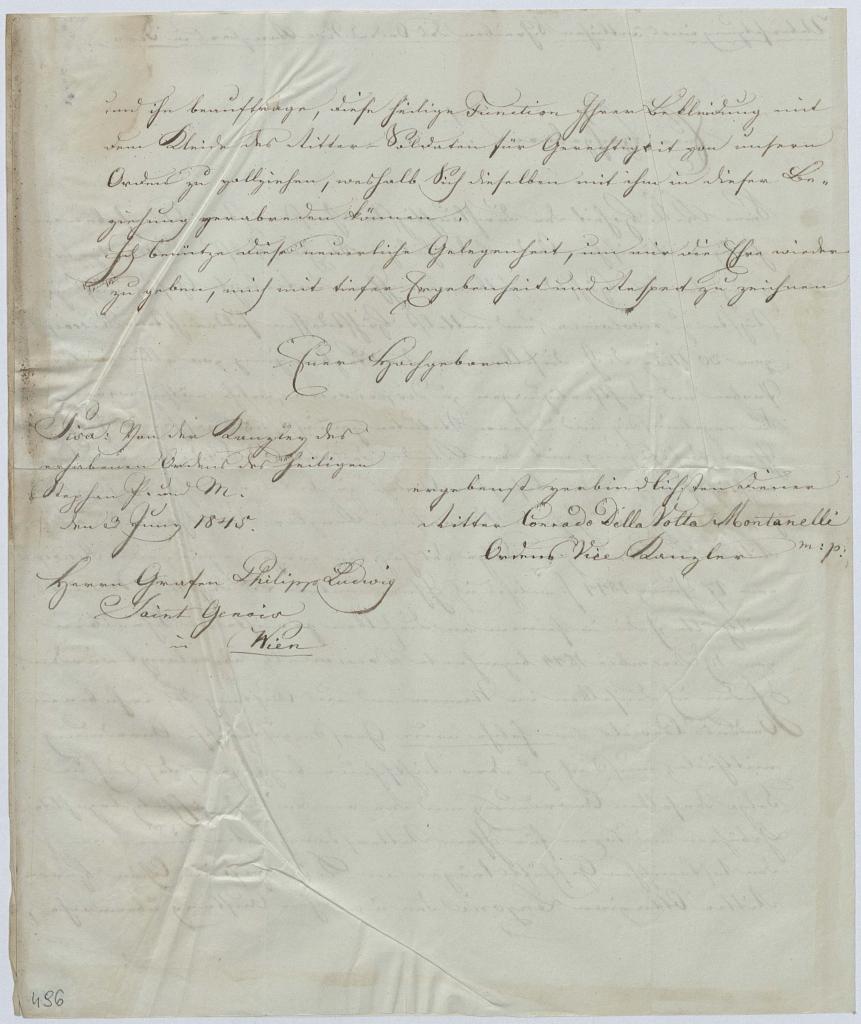 und ihn beauftrage, diese heilige Function Ihrer Bekleidung mit
dem Kleide des Ritter-Soldaten für Gerechtigkeit von unsern
Orden zu vollziehen, weshalb Sich dieselben mit ihm in dieser Be-
ziehung verabreden können.
Ich benütze diese neuerliche Gelegenheit, um mir die Ehre wieder
zu geben, mich mit tiefer Ergebenheit und Respect zu zeichnen
Euer Hochgeboren
Pisa: Von der Kanzley des
erhabenen Ordens des heiligen
Stephan P. und M.
den 3 Juny 1845.
ergebenst verbindlichsten Diener
Ritter Conrado Della Volta Montanelli
Ordens Vice Kanzler m: p:
Herrn Grafen Philipp Ludwig
Saint Genois
in Wien
496